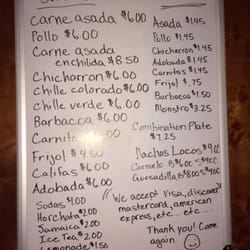 Carne asada $6.00
Pollo $6.00
Carne asada
enchilida $8.50
Chicharron $6.00
Chile colorado $6.00
Chile verde $6.00
Barbacoa $6.00
Carnitas
Frijol $4.50
Califas $6.00
Adobada $6.00
Sodas
Horchata $2.00
Jamaica $2.00
Ice Tea $2.00
Lemonade $1.50
Asada $1.45
Pollo $1.45
Chicharron $1.45
Adobada $1.45
Carnitas $1.45
Frijol $.75
Barbacoa $1.50
Monstro $3.25
Combination Plate
$7.25
Nachos Locos
Carmelo
Quesadilla
We accept Visa, discover
mastercard, american
express, etc... etc...
Thank you! Come
again